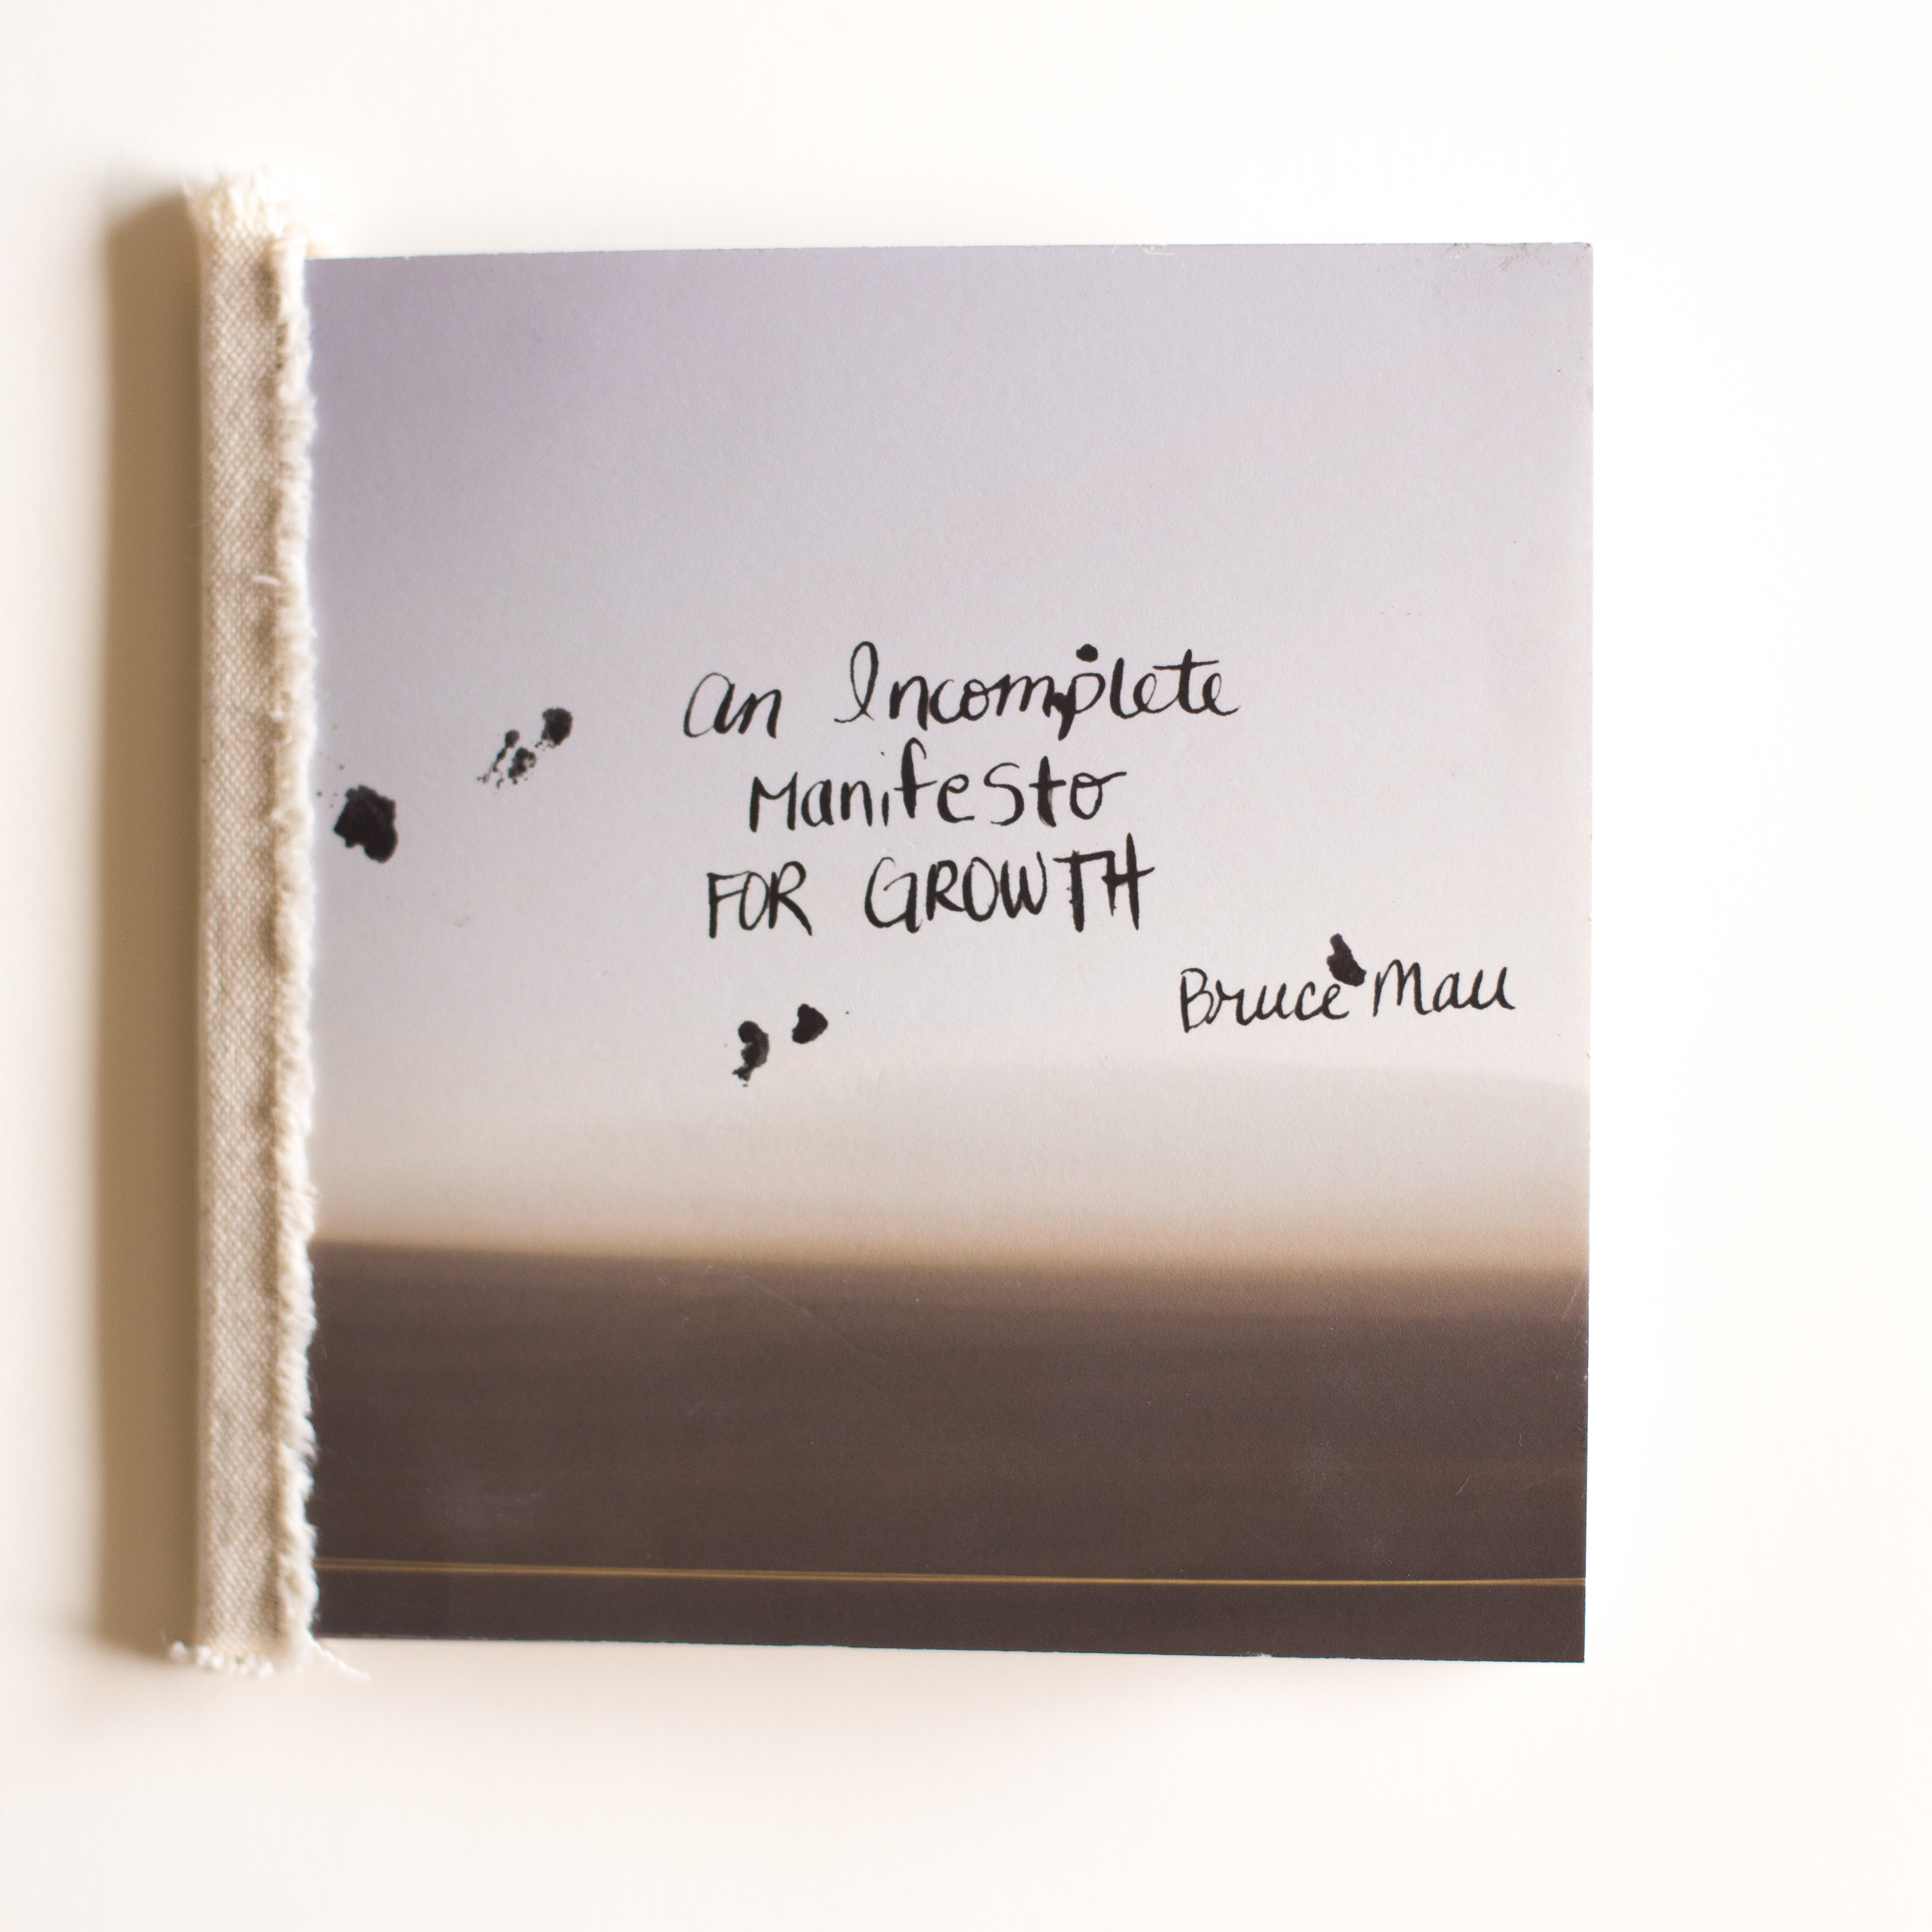 an Incomplete
Manifesto
FOR GROWTH
Bruce Mau